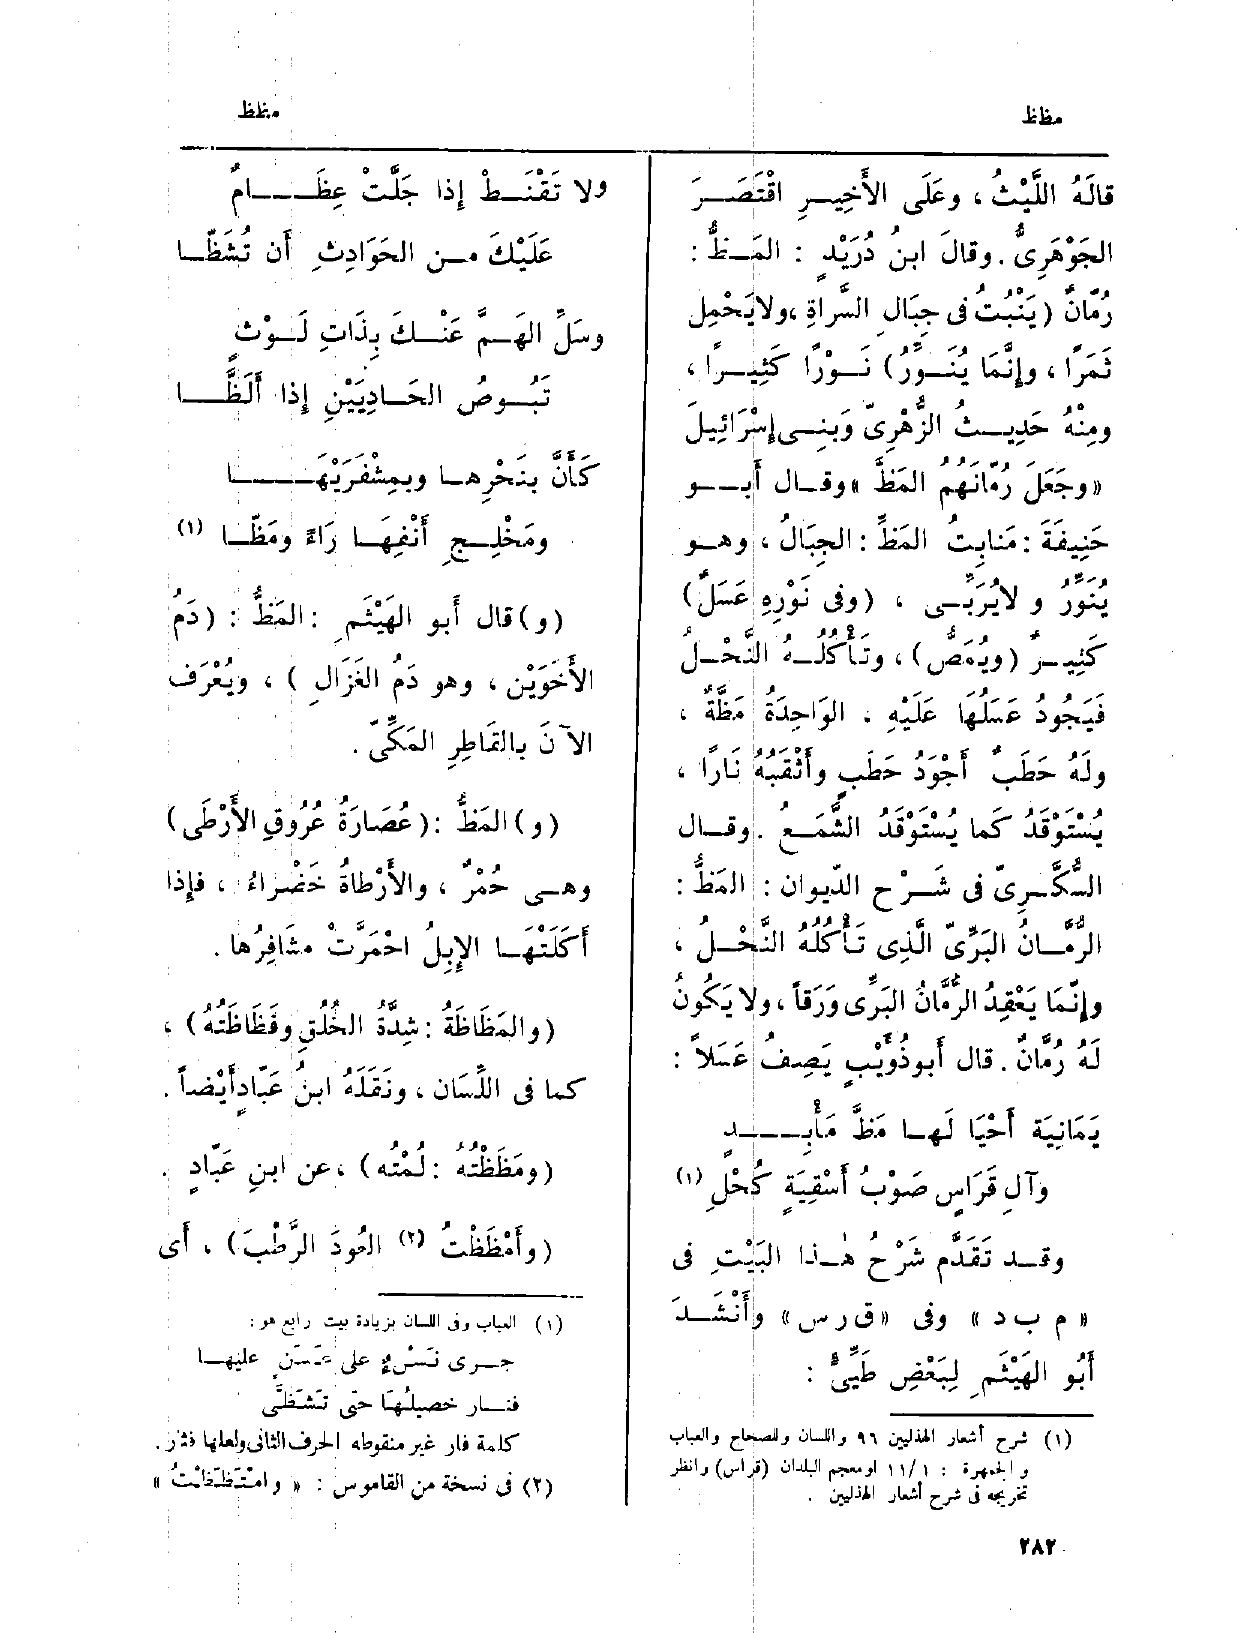 مظظ
مظظ
قالَهُ اللَّيْثُ ، وعَلَى الأَخِيرِ اقْتَصَرَ
الجَوْهَرِىُّ . وقالَ ابنُ دُرَيْدٍ : المَظُّ :
رُمّانٌ (يَنْبُتُ فى جِبَالِ السَّراةِ ، ولايَحْمِل
ثَمَرًا ، وإِنَّمَا يُنَوِّرُ) نَوْرًا كَثِيرًا ،
ومِنْهُ حَدِيثُ الزُّهْرِىّ وَبَنِى إِسْرَائِيلَ
« وجَعَلَ رُمّانَهُمُ المَظَّ » وقال أَبو
حَنِيفَةَ : مَنابِتُ المَظِّ : الجِبَالُ ، وهو
يُنَوِّرُ و لايُرَبِّى ، (وفى نَوْرِهِ عَسَلٌ)
كَثِيرٌ (ويُمَصُّ) ، وتَأْكُلُهُ النَّحْلُ
فَيَجُودُ عَسَلُهَا عَلَيْهِ ، الوَاحِدَةُ مَظَّةٌ ،
ولَهُ حَطَبٌ أَجْوَدُ حَطَبٍ وأَثْقَبُهُ نَارًا ،
يُسْتَوْقَدُ كما يُسْتَوْقَدُ الشَّمَعُ . وقال
السُّكَّرِىّ فى شَرْحِ الدِّيوان : المَظُّ :
الرُّمَّانُ البَرِّىّ الَّذِى تَأْكُلُهُ النَّحْلُ ،
وإِنَّمَا يَعْقِدُ الرُّمَّانُ البَرِّى وَرَقاً ، ولا يَكُونُ
لَهُ رُمَّانٌ . قال أَبوذُوَيْبٍ يَصِفُ عَسَلاً :
يَمَانِيَة أَحْيَا لَهَا مَظَّ مَأْبِدٍ
وآلِ قَرَاسٍ صَوْبُ أَسْقِيَةٍ كُحْلِ (١)
وقد تَقَدَّم شَرْحُ هٰذا البَيْتِ فى
« م ب د » وفى «ق ر س» وأَنْشَدَ
أَبُو الهَيْثَمِ لِبَعْضِ طَيِّئٍ :
(١) شرح أشعار الهذليين ٩٦ واللسان والصحاح والعباب
والجمهرة : ١١/١ اومعجم البلدان (قراس) وانظر
تخريجه فى شرح أشعار الهذليين .
٢٨٢
ولا تَقْنَطْ إِذا جَلَّتْ عِظَامٌ
عَلَيْكَ من الحَوَادِثِ أَن تُشَظَّا
وسَلِّ الهَمَّ عَنْكَ بِذَاتِ لَوْثٍ
تَبُوصُ الحَادِيَيْنِ إِذا أَلَظَّا
كَأَنَّ بنَحْرِها وبِمِشْفَرَيْهَا
ومَخْلِجِ أَنْفِهَا رَاءً ومَظَّا (١)
(و) قال أَبو الهَيْثَمِ : المَظُّ : (دَمُ
الأَخَوَيْنِ ، وهو دَمُ الغَزَالِ ) ، ويُعْرَف
الآنَ بالقَاطِرِ المَكِّىّ .
(و) المَظُّ : (عُصَارَةُ عُرُوقِ الأَرْطَى)
وهى حُمْرٌ ، والأَرْطاةُ خَضْراءُ ، فإِذا
أَكَلَتْهَا الإِبِلُ احْمَرَّتْ مشَافِرُها .
(والمَظَاظَةُ : شِدَّةُ الخُلُقِ وفَظَاظَتُهُ) ،
كما فى اللِّسَان ، ونَقَلَهُ ابنُ عَبّادٍ أَيْضاً .
(ومَظَظْتُهُ : لُمْتُه) ، عن ابنِ عَبّادٍ .
(وأَمْظَظْتُ (٢) العُودَ الرَّطْبَ) ، أَى
(١) العباب وفى اللسان بزيادة بيت رابع هو :
جرى نَسْءٌ على عَسَنٍ عليها
فار خصيلُها حتى تَشَظَّى
كلمة فار غير منقوطه الحرف الثانى ولعلها فثار .
(٢) فى نسخة من القاموس : « وامْتَظَظْتُ »